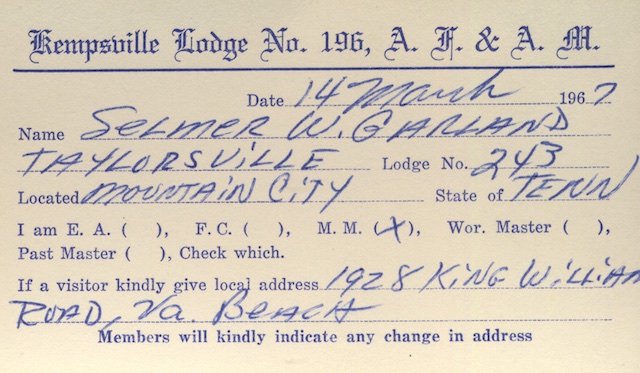 Kempsville Lodge No. 196, A. F. & A. M.
Date 14 March 1967
Name SELMER W. GARLAND
TAYLORSVILLE Lodge No. 243
Located MOUNTAIN CITY State of TENN
I am E. A. ( ), F. C. ( ), M. M. (X), Wor. Master ( ),
Past Master ( ), Check which.
If a visitor kindly give local address 1928 KING WILLIAM
ROAD, Va. BEACH
Members will kindly indicate any change in address